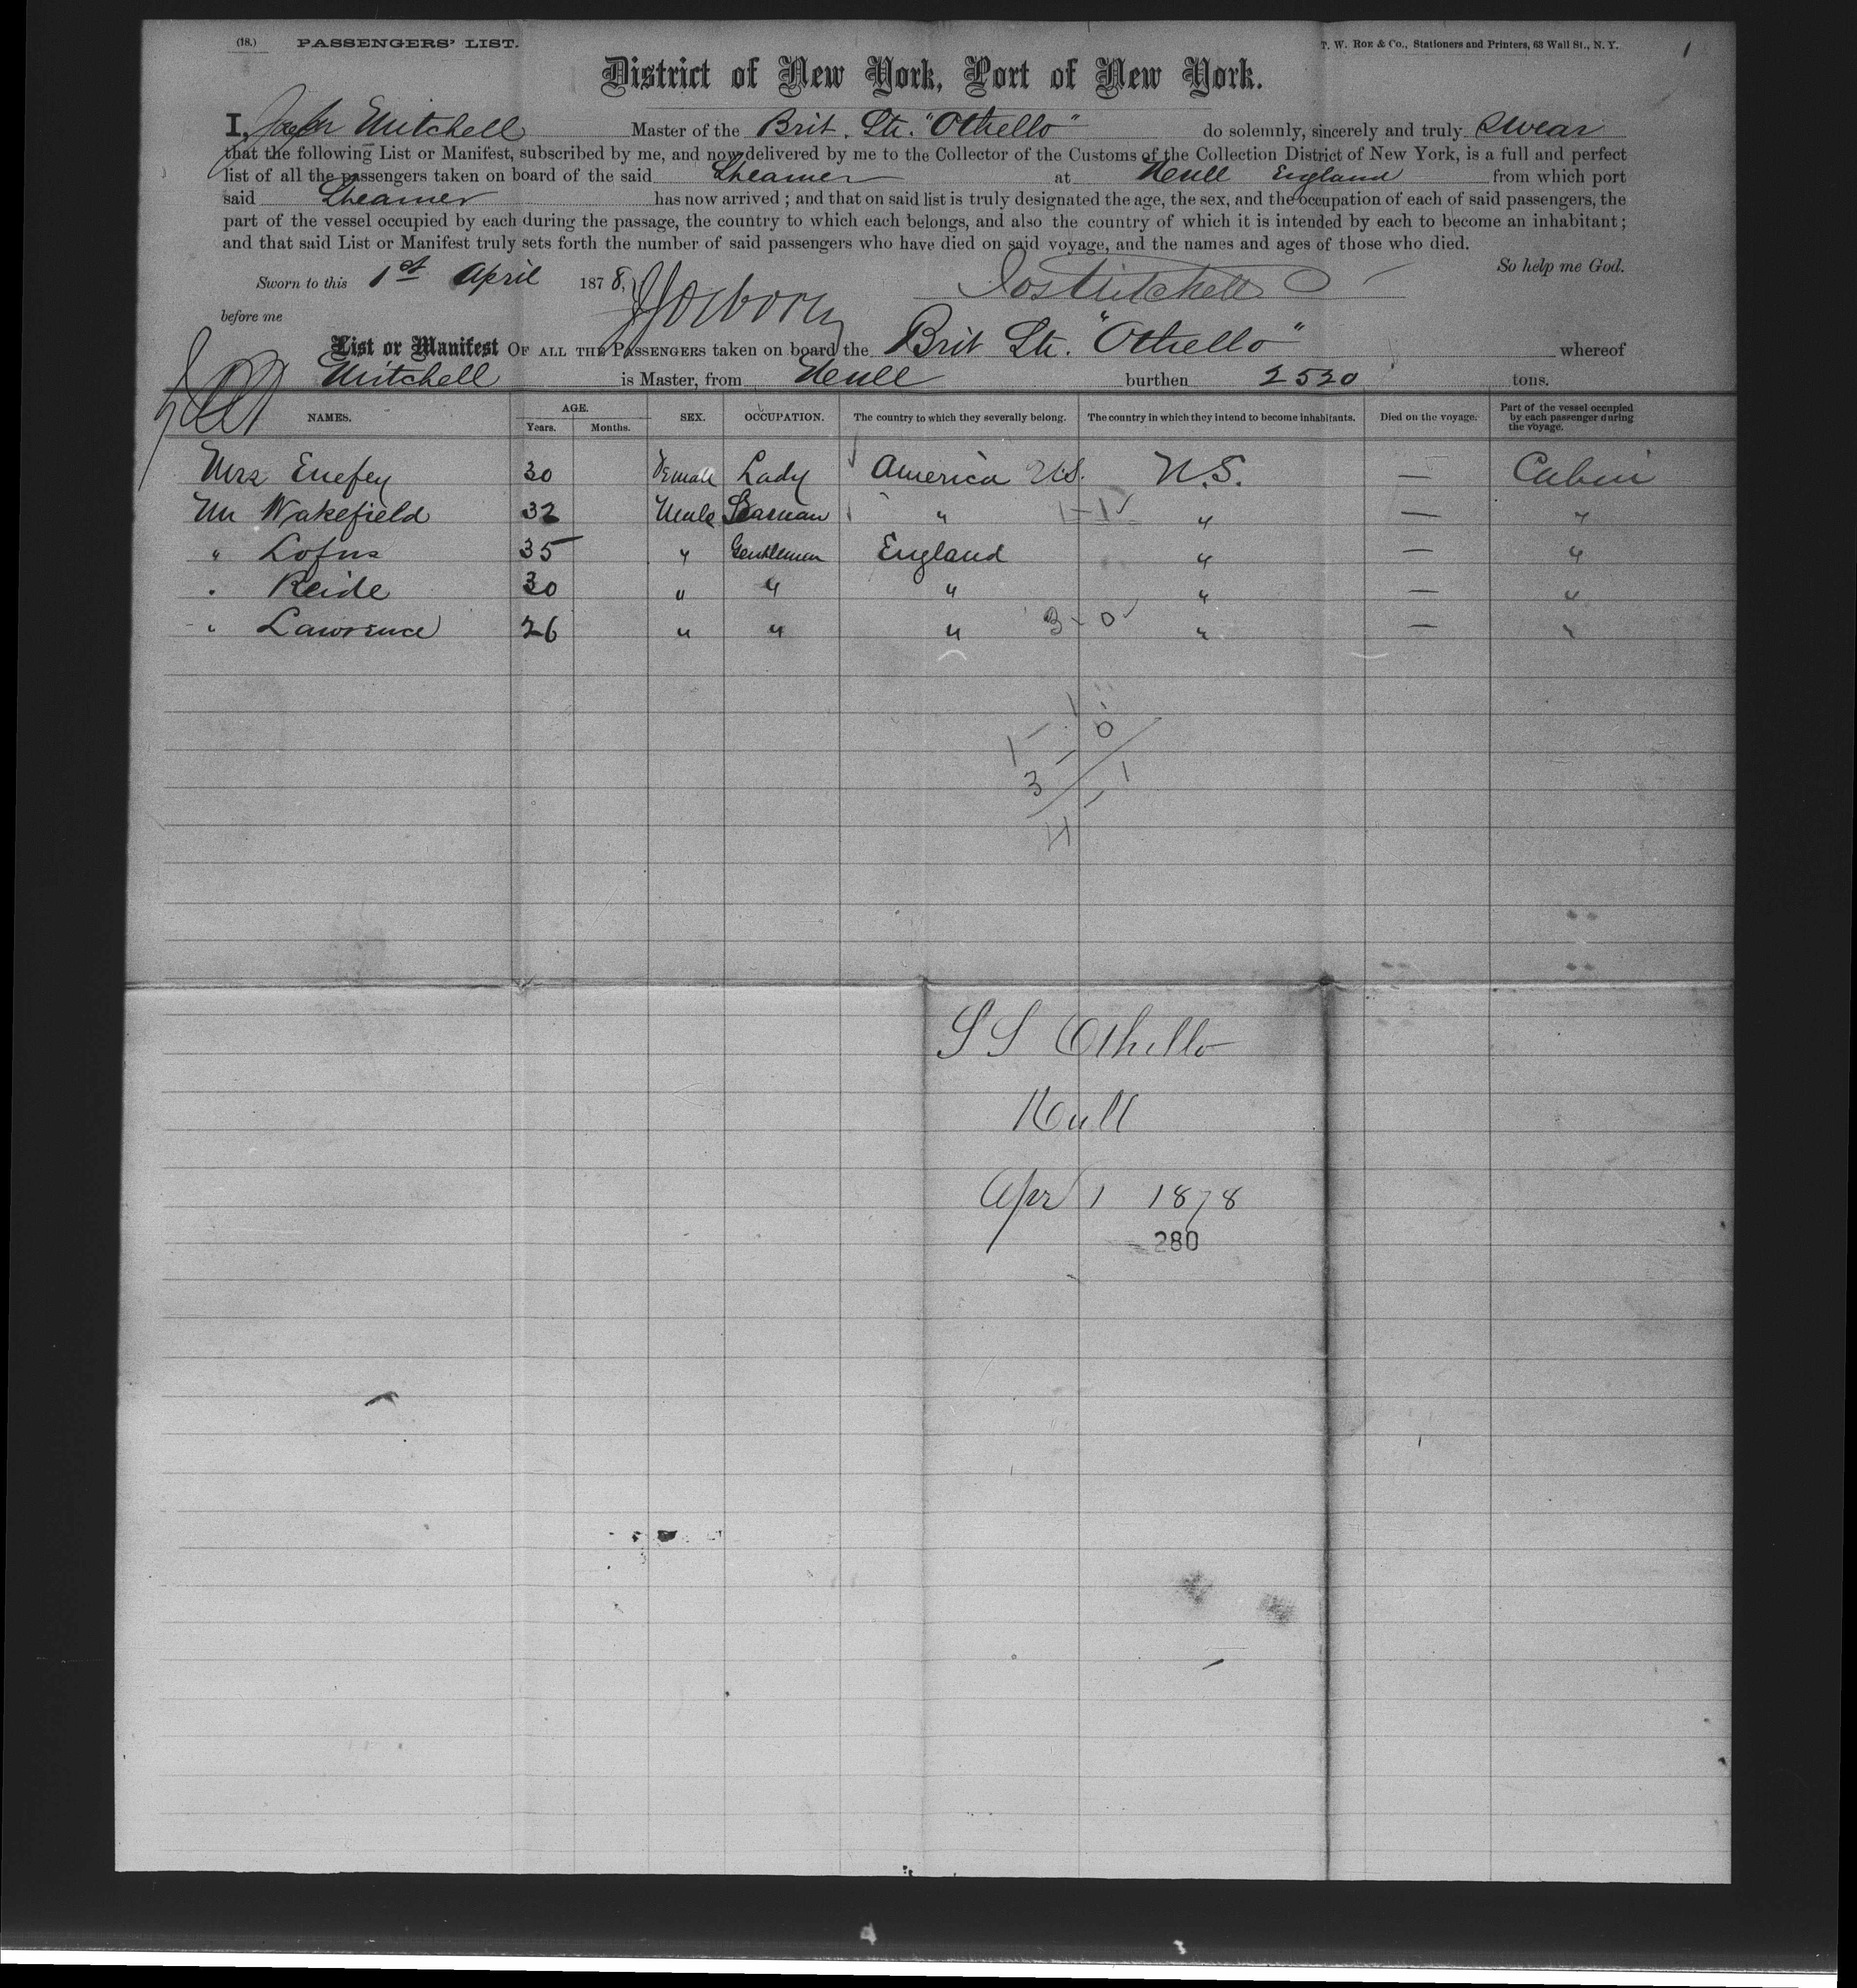 (18.) PASSENGERS' LIST. T. W. ROE & CO., Stationers and Printers, 63 Wall St., N. Y. 1
District of New York, Port of New York.
I, Mitchell Master of the Brit. Str. "Othello" do solemnly, sincerely and truly swear
that the following List or Manifest, subscribed by me, and now delivered by me to the Collector of the Customs of the Collection District of New York, is a full and perfect
list of all the passengers taken on board of the said Steamer at Hull England from which port
said Steamer has now arrived; and that on said list is truly designated the age, the sex, and the occupation of each of said passengers, the
part of the vessel occupied by each during the passage, the country to which each belongs, and also the country of which it is intended by each to become an inhabitant;
and that said List or Manifest truly sets forth the number of said passengers who have died on said voyage, and the names and ages of those who died.
So help me God.
Sworn to this 1st April 1878, Jos Mitchell
before me
List or Manifest OF ALL THE PASSENGERS taken on board the Brit Str. "Othello" whereof
Mitchell is Master, from Hull burthen 2520 tons.
NAMES. AGE. Years. Months. SEX. OCCUPATION. The country to which they severally belong. The country in which they intend to become inhabitants. Died on the voyage. Part of the vessel occupied by each passenger during the voyage.
Mrs 30 Female Lady America U.S. U.S. — Cabin
Mr Wakefield 32 Male Seaman " 1-1 " — "
" Lofus 35 " Gentleman England " — "
" Reide 30 " " " " — "
" Lawrence 26 " " " 3-0 " — "
1 - 1
3 - 0
4 - 1
S S Othello
Hull
Apr 1 1878
280